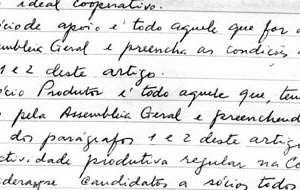 ideal cooperativo.
ócio de apoio é todo aquele que for a
embleia Geral e preencha as condições
1 e 2 deste artigo.
ócio Produtor é todo aquele que, ten
pela Assembleia Geral e preenchend
dos parágrafos 1 e 2 deste artigo
actividade produtiva regular na Co
iderapse candidatos a sócios todos